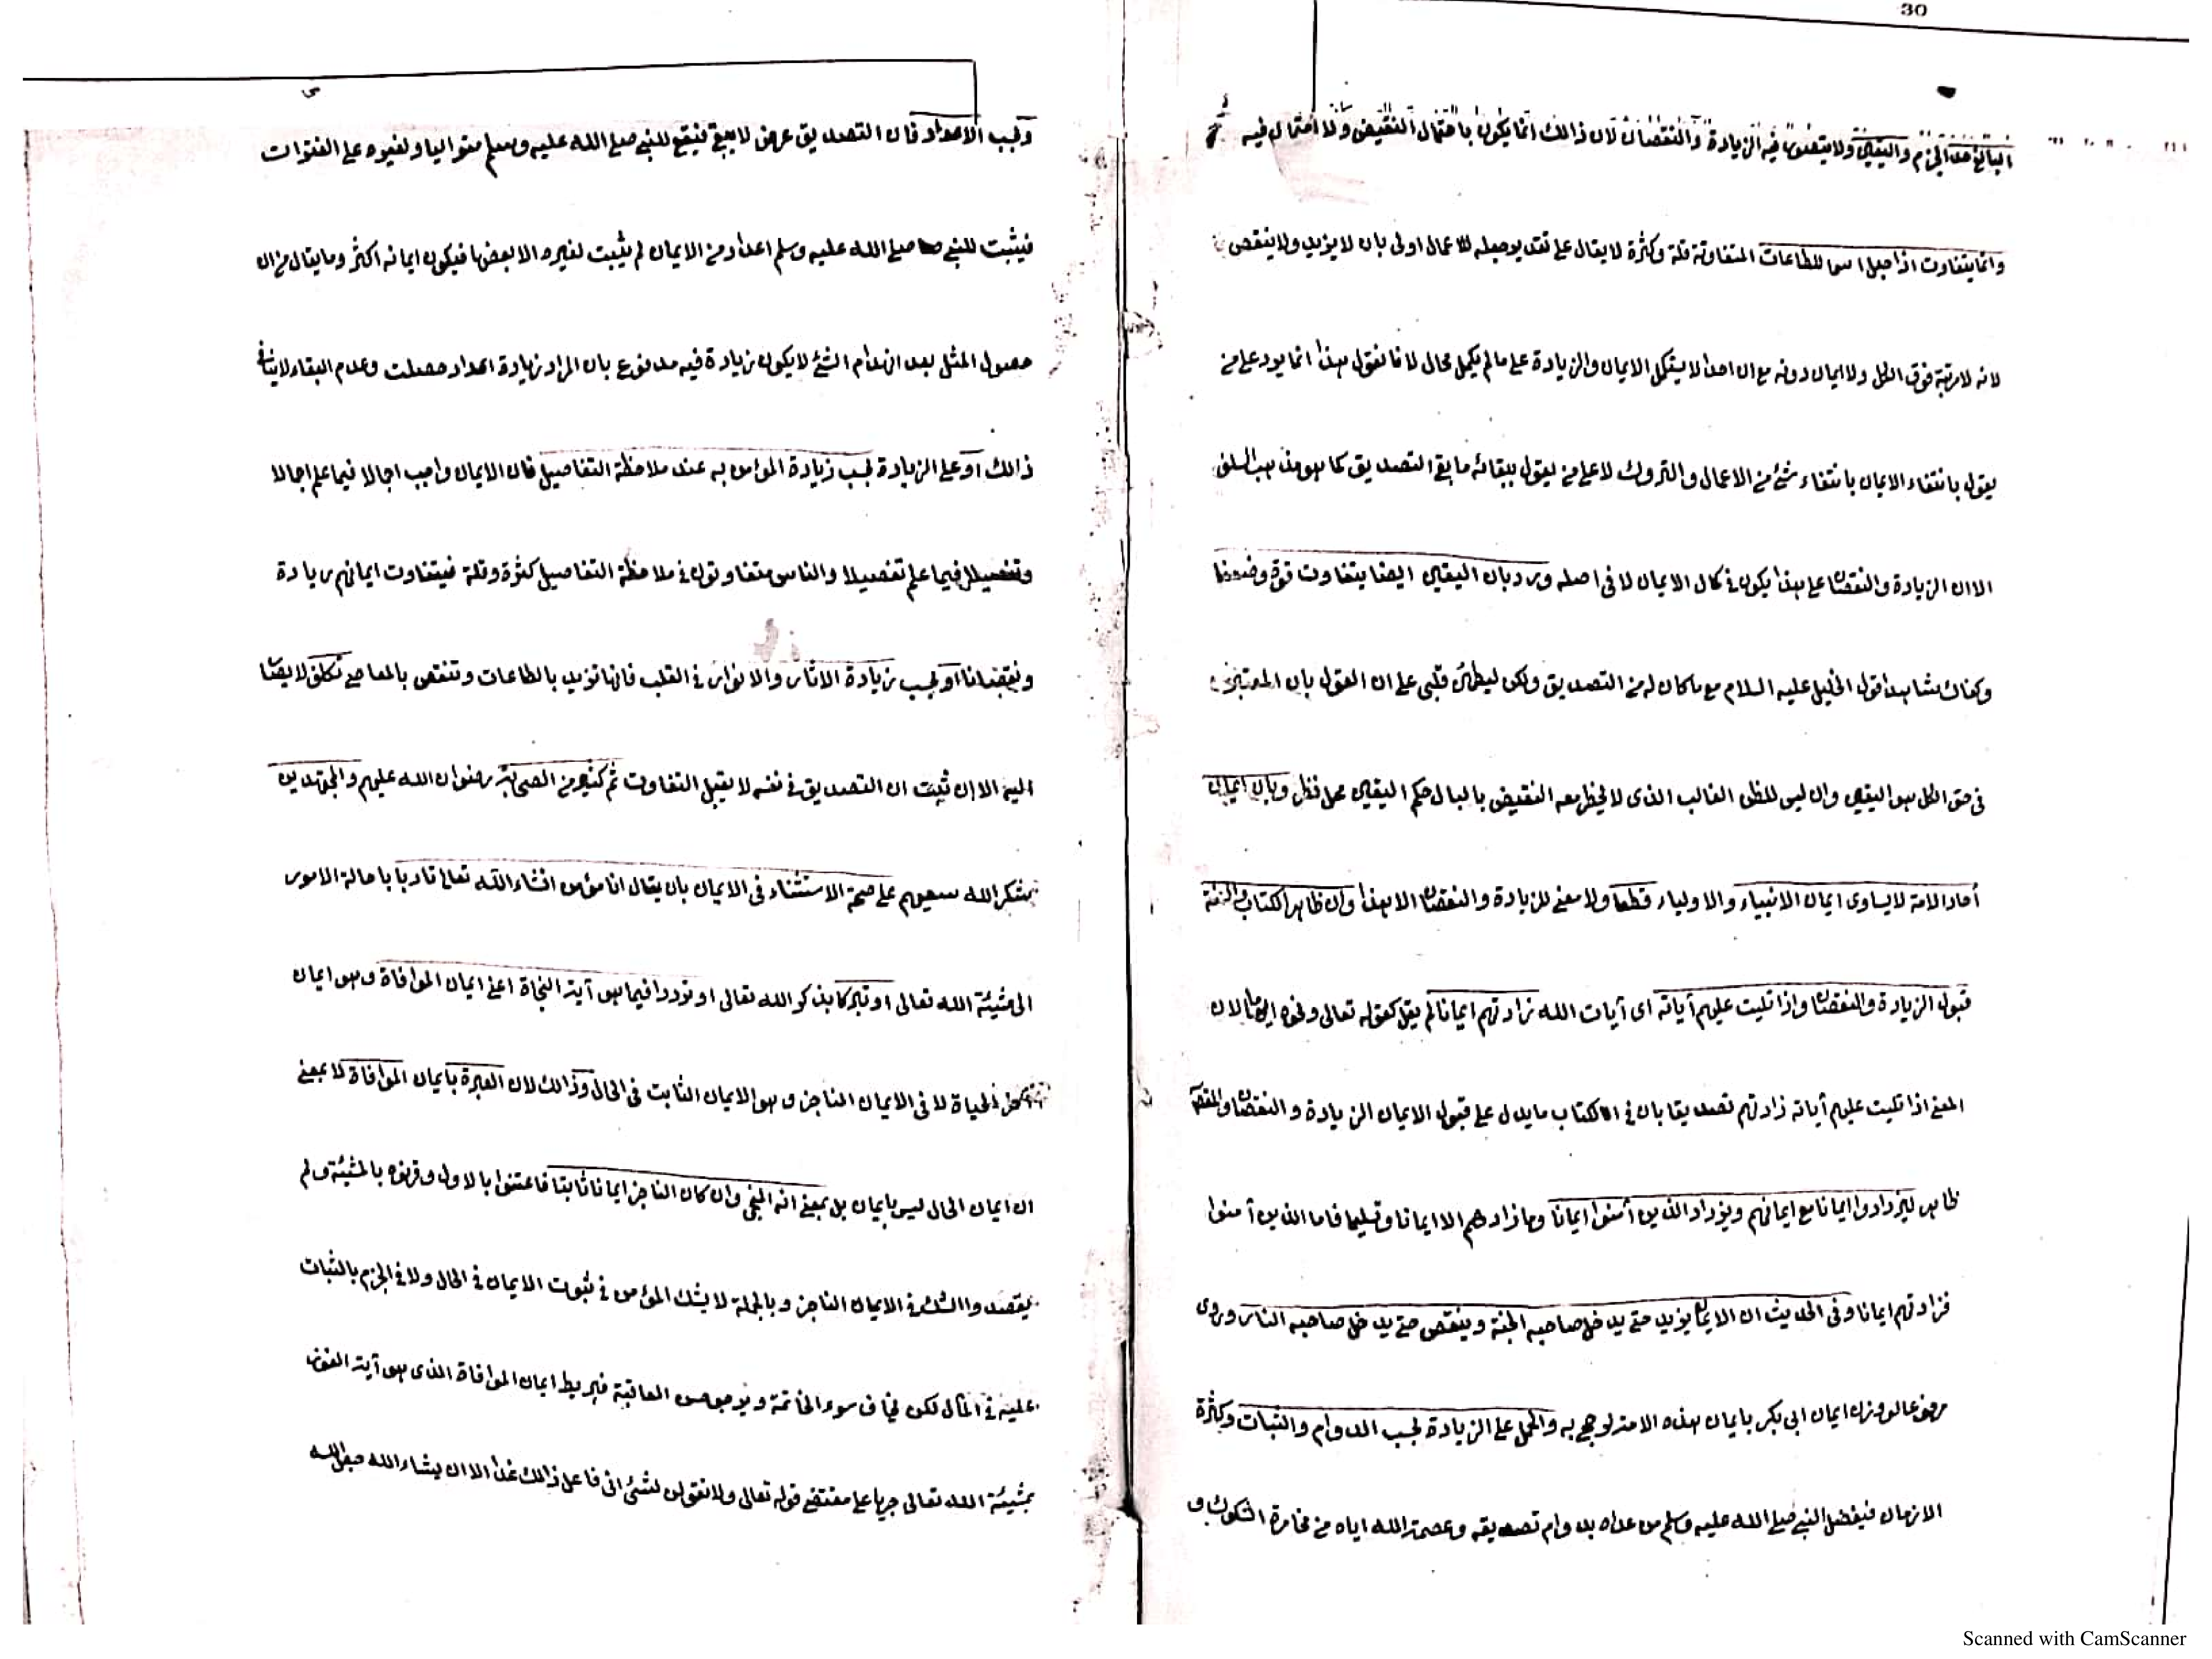 30
البالغ حد الجزم واليقين ولا يتصور فيه الزيادة والنقصان لان ذالك انما يكون باحتمال النقيض ولا احتمال فيه
وانما يتفاوت اذا جعل اسما للطاعات المتفاوتة قلة وكثرة لا يقال على تقدير جعله للاعمال اولى بان لا يزيد ولا ينقص
لانه لا مرتبة فوق الكل ولا ايمان دونه مع ان احدا لا يستكمل الايمان والزيادة على مالم يكمل محال لانا نقول هذا انما يرد على من
يقول بانتفاء الايمان بانتفاء شئ من الاعمال والتروك لا على من يقول ببقائه ما بقى التصديق كما هو مذهب السلف
الا ان الزيادة والنقصان على هذا يكون فى كمال الايمان لا فى اصله ورد بان اليقين ايضا يتفاوت قوة وضعفا
وكفاك شاهدا قول الخليل عليه السلام مع ما كان له من التصديق ولكن ليطمئن قلبى على ان القول بان المعتبر
فى حق الكل هو اليقين وان ليس للظن الغالب الذى لا يخطر معه النقيض بالبال حكم اليقين محل نظر وبان ايمان
آحاد الامة لا يساوى ايمان الانبياء والاولياء قطعا ولا معنى للزيادة والنقصان الا هذا وان ظاهر الكتاب والسنة
قبول الزيادة والنقصان واذا تليت عليهم آياته اى آيات الله زادتهم ايمانا لم يقل كقوله تعالى ونحوه لان
المعنى اذا تليت عليهم آياته زادتهم تصديقا بان فى الكتاب ما يدل على قبول الايمان الزيادة والنقصان
ظاهر ليزدادوا ايمانا مع ايمانهم ويزداد الذين آمنوا ايمانا وما زادهم الا ايمانا وتسليما فاما الذين آمنوا
فزادتهم ايمانا وفى الحديث ان الايمان يزيد حتى يدخل صاحبه الجنة وينقص حتى يدخل صاحبه النار وروى
مرفوعا لو وزن ايمان ابى بكر بايمان هذه الامة لرجح به والحمل على الزيادة بحسب الدوام والثبات وكثرة
الازمان فيفضل النبى صلى الله عليه وسلم من عداه بدوام تصديقه وعصمة الله اياه من مخامرة الشكوك و
وبحسب الاعداد فان التصديق عرض لا يبقى فيقع للنبى صلى الله عليه وسلم متواليا ولغيره على الفترات
فيثبت للنبى صلى الله عليه وسلم اعداد من الايمان لم يثبت لغيره الا بعضها فيكون ايمانه اكثر وما يقال من ان
حصول المثل بعد انهدام الشئ لا يكون زيادة فيه مدفوع بان المراد زيادة اعداد حصلت وعدم البقاء لا ينافى
ذالك او على الزيادة بحسب زيادة المؤمن به عند ملاحظة التفاصيل فان الايمان واجب اجمالا فيما علم اجمالا
وتفصيلا فيما علم تفصيلا والناس متفاوتون فى ملاحظة التفاصيل كثرة وقلة فيتفاوت ايمانهم زيادة
ونقصانا او بحسب زيادة الاثار والانوار فى القلب فانها تزيد بالطاعات وتنقص بالمعاصى تكلف لا يصار
اليه الا ان ثبت ان التصديق فى نفسه لا يقبل التفاوت ثم كثير من الصحابة رضوان الله عليهم والمجتهدين
شكر الله سعيهم على صحة الاستثناء فى الايمان بان يقال انا مؤمن انشاء الله تعالى تادبا باحالة الامور
الى مشيئة الله تعالى او تبركا بذكر الله تعالى او ترددا فيما هو آية النجاة اعنى ايمان الموافاة وهو ايمان
الحياة لا فى الايمان الناجز وهو الايمان الثابت فى الحال وذالك لان العبرة بايمان الموافاة لا بمعنى
ان ايمان الحال ليس بايمان بل بمعنى انه المنجى وان كان الناجز ايمانا ثابتا فاعتنوا بالاول وقرنوه بالمشيئة ولم
يقصدوا الشك فى الايمان الناجز وبالجملة لا يشك المؤمن فى ثبوت الايمان فى الحال ولا فى الجزم بالثبات
عليه فى المآل لكن يخاف سوء الخاتمة ويرجو حسن العاقبة فيربط ايمان الموافاة الذى هو آية الفوز
بمشيئة الله تعالى جريا على مقتضى قوله تعالى ولا تقولن لشئ انى فاعل ذالك غدا الا ان يشاء الله جعل الله
Scanned with CamScanner